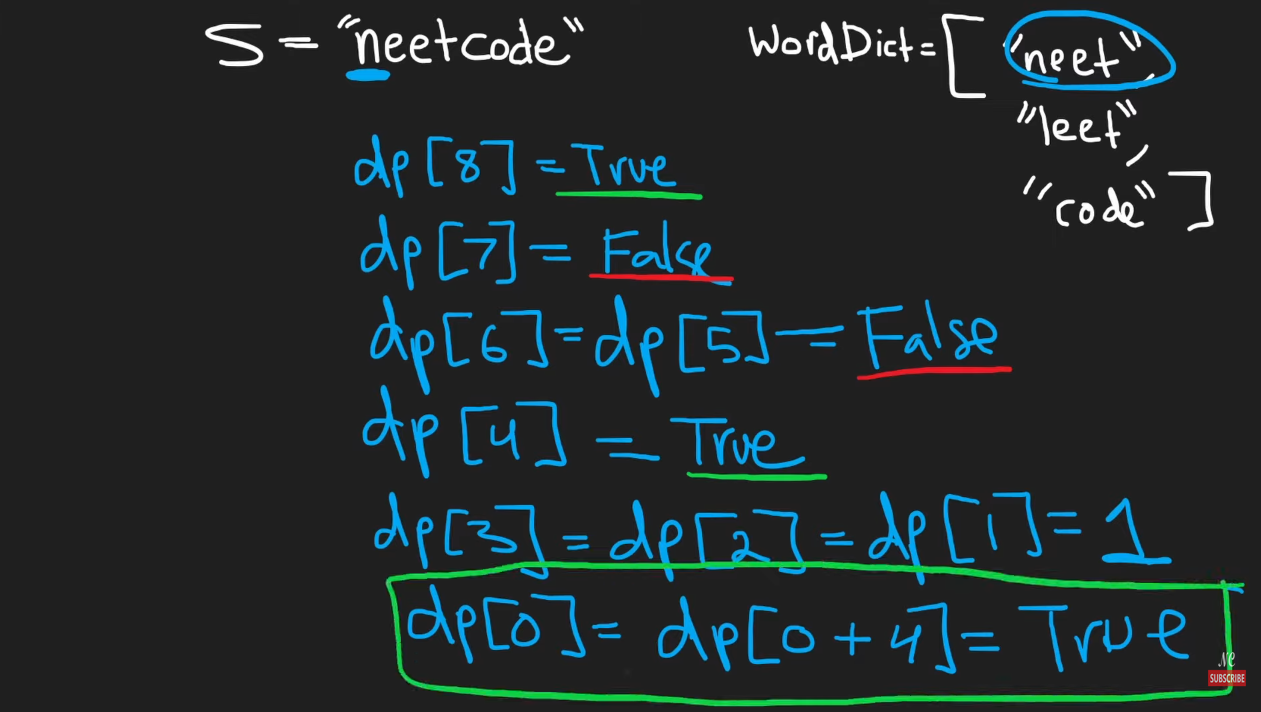 S = "neetcode"
WordDict = [ "neet",
"leet",
"code" ]
dp[8] = True
dp[7] = False
dp[6] = dp[5] = False
dp[4] = True
dp[3] = dp[2] = dp[1] = 1
dp[0] = dp[0+4] = True
NC
SUBSCRIBE